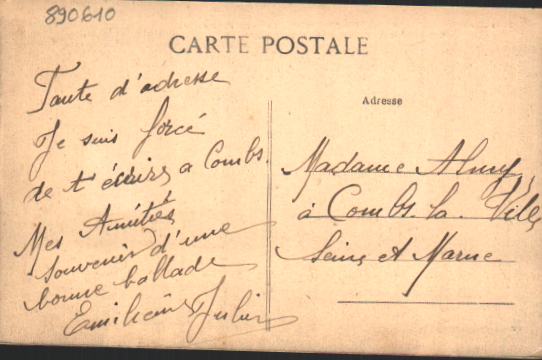 890610
CARTE POSTALE
Faute d'adresse
Je suis forcé
de t'écrire a Combs.
Mes Amitiés
souvenir d'une
bonne ballade
Adresse
Madame
à Combs. la. Ville
Seine et Marne